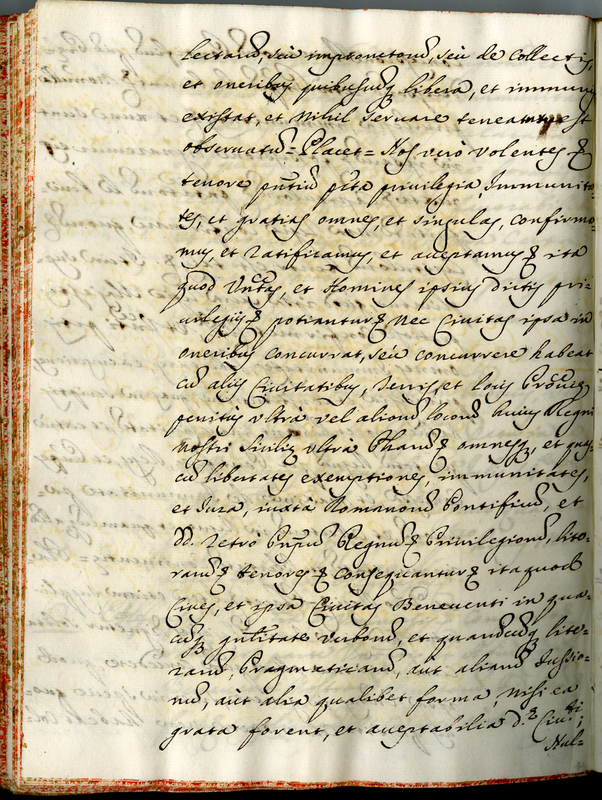 lectarũ, seù impronctorũ, seù de Collectis,
et oneribus quibuscũq libera, et immunis
existat, et nihil servare teneatur est
observatũ = Placet = Nos verò volentes &
tenore pñtiũ pñta privilegia, Immunita=
tes, et gratias omnes, et singulas, confirma=
mus, et ratificamus, et aceptamus & ita
quod Unṫas, et Homines ipsius dictis pri=
vilegijs & potiantur & Nec Civitas ipsa in
oneribus concurrat, seù concurrere habeat
cũ alijs Civitatibus, Terris, et locis
penitus ultrà vel aliorũ locorũ huius Regni
nostri Siciliȩ ultrà Pharũ & omnesq, et
cũ libertates exemptiones, immunitates,
et Iura, iuxtà Romanorũ Pontificũ, et
DD. retrò Regnũ & Privilegiorũ, lite=
rarũ & tenores & Consequantur & ita quod
Cives, et ipsa Civitas Beneventi in qua=
cũq gñlitate verborũ, et quarũcũq lite=
rarũ, Pragmaticarũ, aùt aliarũ Iussio=
nũ, aùt alia qualibet forma, nisi ea
grata forent, et aceptabilia d.ȩ Civ.ti;
Nul=